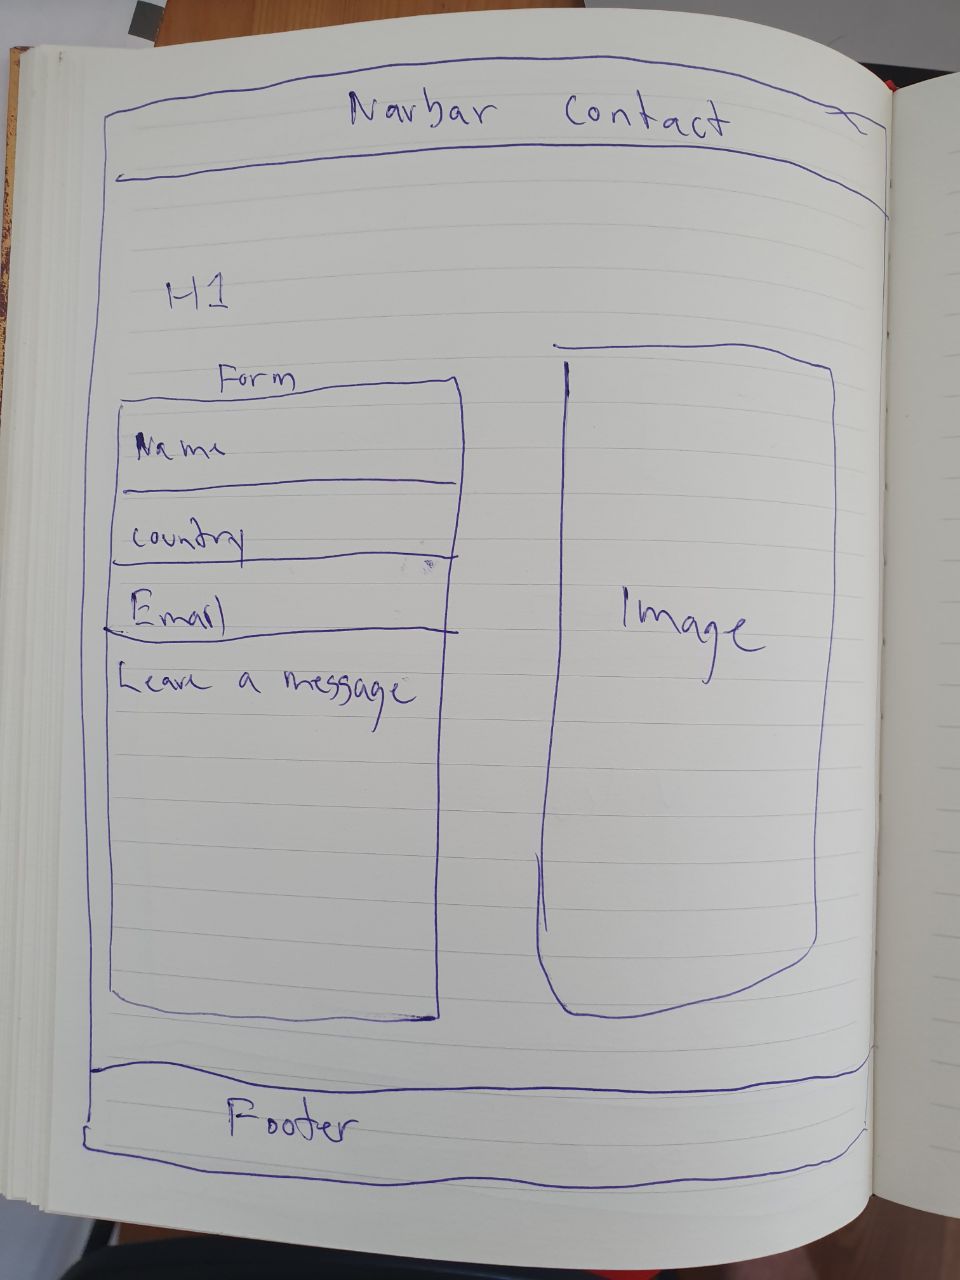 Navbar Contact
H1
Form
Name
Country
Email
Leave a message
Image
Footer